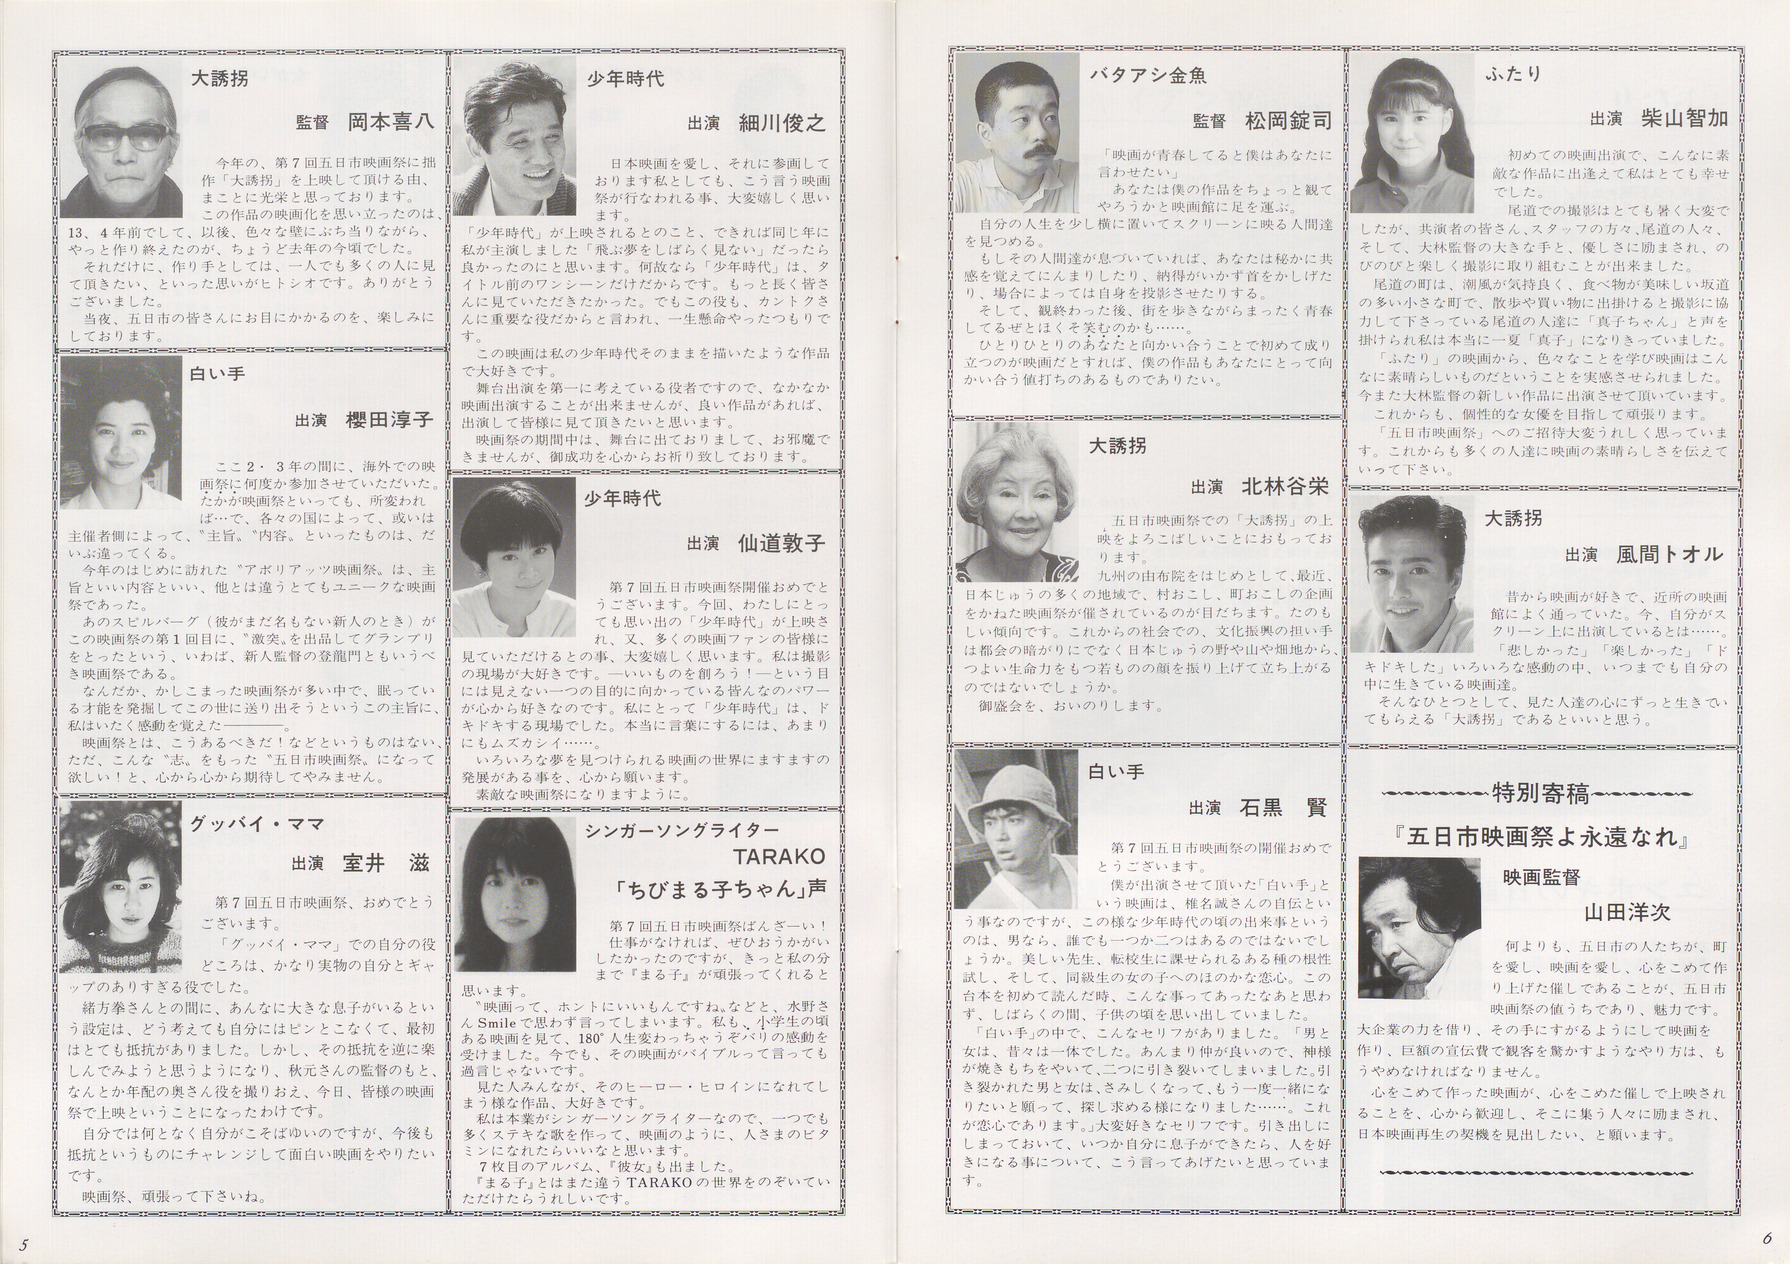 大誘拐
監督　岡本喜八
今年の、第7回五日市映画祭に拙
作「大誘拐」を上映して頂ける由、
まことに光栄と思っております。
この作品の映画化を思い立ったのは、
13、4年前でして、以後、色々な壁にぶち当りながら、
やっと作り終えたのが、ちょうど去年の今頃でした。
それだけに、作り手としては、一人でも多くの人に見
て頂きたい、といった思いがヒトシオです。ありがとう
ございました。
当夜、五日市の皆さんにお目にかかるのを、楽しみに
しております。
白い手
出演　櫻田淳子
ここ2・3年の間に、海外での映
画祭に何度か参加させていただいた。
たかが映画祭といっても、所変われ
ば…で、各々の国によって、或いは
主催者側によって、〝主旨〟〝内容〟といったものは、だ
いぶ違ってくる。
今年のはじめに訪れた〝アボリアッツ映画祭〟は、主
旨といい内容といい、他とは違うとてもユニークな映画
祭であった。
あのスピルバーグ（彼がまだ名もない新人のとき）が
この映画祭の第1回目に、〝激突〟を出品してグランプリ
をとったという、いわば、新人監督の登龍門ともいうべ
き映画祭である。
なんだか、かしこまった映画祭が多い中で、眠ってい
る才能を発掘してこの世に送り出そうというこの主旨に、
私はいたく感動を覚えた――――。
映画祭とは、こうあるべきだ！などというものはない、
ただ、こんな〝志〟をもった〝五日市映画祭〟になって
欲しい！と、心から心から期待してやみません。
グッバイ・ママ
出演　室井　滋
第7回五日市映画祭、おめでとう
ございます。
「グッバイ・ママ」での自分の役
どころは、かなり実物の自分とギャ
ップのありすぎる役でした。
緒方拳さんとの間に、あんなに大きな息子がいるとい
う設定は、どう考えても自分にはピンとこなくて、最初
はとても抵抗がありました。しかし、その抵抗を逆に楽
しんでみようと思うようになり、秋元さんの監督のもと、
なんとか年配の奥さん役を撮りおえ、今日、皆様の映画
祭で上映ということになったわけです。
自分では何となく自分がこそばゆいのですが、今後も
抵抗というものにチャレンジして面白い映画をやりたい
です。
映画祭、頑張って下さいね。
5
少年時代
出演　細川俊之
日本映画を愛し、それに参画して
おります私としても、こう言う映画
祭が行なわれる事、大変嬉しく思い
ます。
「少年時代」が上映されるとのこと、できれば同じ年に
私が主演しました「飛ぶ夢をしばらく見ない」だったら
良かったのにと思います。何故なら「少年時代」は、タ
イトル前のワンシーンだけだからです。もっと長く皆さ
んに見ていただきたかった。でもこの役も、カントクさ
んに重要な役だからと言われ、一生懸命やったつもりで
す。
この映画は私の少年時代そのままを描いたような作品
で大好きです。
舞台出演を第一に考えている役者ですので、なかなか
映画出演することが出来ませんが、良い作品があれば、
出演して皆様に見て頂きたいと思います。
映画祭の期間中は、舞台に出ておりまして、お邪魔で
きませんが、御成功を心からお祈り致しております。
少年時代
出演　仙道敦子
第7回五日市映画祭開催おめでと
うございます。今回、わたしにとっ
ても思い出の「少年時代」が上映さ
れ、又、多くの映画ファンの皆様に
見ていただけるとの事、大変嬉しく思います。私は撮影
の現場が大好きです。―いいものを創ろう！―という目
には見えない一つの目的に向かっている皆んなのパワー
が心から好きなのです。私にとって「少年時代」は、ド
キドキする現場でした。本当に言葉にするには、あまり
にもムズカシイ……。
いろいろな夢を見つけられる映画の世界にますますの
発展がある事を、心から願います。
素敵な映画祭になりますように。
シンガーソングライター
TARAKO
「ちびまる子ちゃん」声
第7回五日市映画祭ばんざーい！
仕事がなければ、ぜひおうかがい
したかったのですが、きっと私の分
まで『まる子』が頑張ってくれると
思います。
〝映画って、ホントにいいもんですね〟などと、水野さ
んSmileで思わず言ってしまいます。私も、小学生の頃
ある映画を見て、180°人生変わっちゃうぞバリの感動を
受けました。今でも、その映画がバイブルって言っても
過言じゃないです。
見た人みんなが、そのヒーロー・ヒロインになれてし
まう様な作品、大好きです。
私は本業がシンガーソングライターなので、一つでも
多くステキな歌を作って、映画のように、人さまのビタ
ミンになれたらいいなと思います。
7枚目のアルバム、『彼女』も出ました。
『まる子』とはまた違うTARAKOの世界をのぞいてい
ただけたらうれしいです。
バタアシ金魚
監督　松岡錠司
「映画が青春してると僕はあなたに
言わせたい」
あなたは僕の作品をちょっと観て
やろうかと映画館に足を運ぶ。
自分の人生を少し横に置いてスクリーンに映る人間達
を見つめる。
もしその人間達が息づいていれば、あなたは秘かに共
感を覚えてにんまりしたり、納得がいかず首をかしげた
り、場合によっては自身を投影させたりする。
そして、観終わった後、街を歩きながらまったく青春
してるぜとほくそ笑むのかも……。
ひとりひとりのあなたと向かい合うことで初めて成り
立つのが映画だとすれば、僕の作品もあなたにとって向
かい合う値打ちのあるものでありたい。
大誘拐
出演　北林谷栄
五日市映画祭での「大誘拐」の上
映をよろこばしいことにおもってお
ります。
九州の由布院をはじめとして、最近、
日本じゅうの多くの地域で、村おこし、町おこしの企画
をかねた映画祭が催されているのが目だちます。たのも
しい傾向です。これからの社会での、文化振興の担い手
は都会の暗がりにでなく日本じゅうの野や山や畑地から、
つよい生命力をもつ若ものの顔を振り上げて立ち上がる
のではないでしょうか。
御盛会を、おいのりします。
白い手
出演　石黒　賢
第7回五日市映画祭の開催おめで
とうございます。
僕が出演させて頂いた「白い手」と
いう映画は、椎名誠さんの自伝とい
う事なのですが、この様な少年時代の頃の出来事という
のは、男なら、誰でも一つか二つはあるのではないでし
ょうか。美しい先生、転校生に課せられるある種の根性
試し、そして、同級生の女の子へのほのかな恋心。この
台本を初めて読んだ時、こんな事ってあったなあと思わ
ず、しばらくの間、子供の頃を思い出していました。
「白い手」の中で、こんなセリフがありました。「男と
女は、昔々は一体でした。あんまり仲が良いので、神様
が焼きもちをやいて、二つに引き裂いてしまいました。引
き裂かれた男と女は、さみしくなって、もう一度一緒にな
りたいと願って、探し求める様になりました……。これ
が恋心であります。」大変好きなセリフです。引き出しに
しまっておいて、いつか自分に息子ができたら、人を好
きになる事について、こう言ってあげたいと思っていま
す。
ふたり
出演　柴山智加
初めての映画出演で、こんなに素
敵な作品に出逢えて私はとても幸せ
でした。
尾道での撮影はとても暑く大変で
したが、共演者の皆さん、スタッフの方々、尾道の人々、
そして、大林監督の大きな手と、優しさに励まされ、の
びのびと楽しく撮影に取り組むことが出来ました。
尾道の町は、潮風が気持良く、食べ物が美味しい坂道
の多い小さな町で、散歩や買い物に出掛けると撮影に協
力して下さっている尾道の人達に「真子ちゃん」と声を
掛けられ私は本当に一夏「真子」になりきっていました。
「ふたり」の映画から、色々なことを学び映画はこん
なに素晴らしいものだということを実感させられました。
今また大林監督の新しい作品に出演させて頂いています。
これからも、個性的な女優を目指して頑張ります。
「五日市映画祭」へのご招待大変うれしく思っていま
す。これからも多くの人達に映画の素晴らしさを伝えて
いって下さい。
大誘拐
出演　風間トオル
昔から映画が好きで、近所の映画
館によく通っていた。今、自分がス
クリーン上に出演しているとは……。
「悲しかった」「楽しかった」「ド
キドキした」いろいろな感動の中、いつまでも自分の
中に生きている映画達。
そんなひとつとして、見た人達の心にずっと生きてい
てもらえる「大誘拐」であるといいと思う。
特別寄稿
『五日市映画祭よ永遠なれ』
映画監督
山田洋次
何よりも、五日市の人たちが、町
を愛し、映画を愛し、心をこめて作
り上げた催しであることが、五日市
映画祭の値うちであり、魅力です。
大企業の力を借り、その手にすがるようにして映画を
作り、巨額の宣伝費で観客を驚かすようなやり方は、も
うやめなければなりません。
心をこめて作った映画が、心をこめた催しで上映され
ることを、心から歓迎し、そこに集う人々に励まされ、
日本映画再生の契機を見出したい、と願います。
6